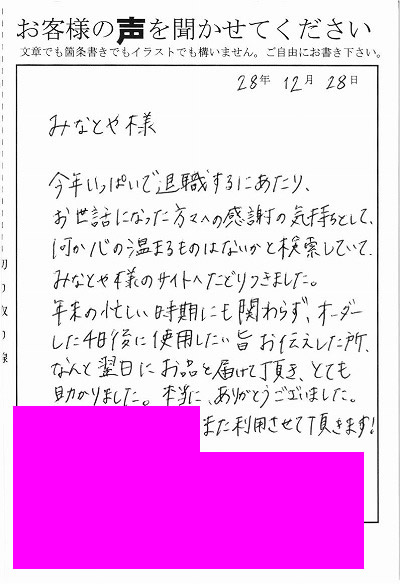 お客様の声を聞かせてください
文章でも箇条書きでもイラストでも構いません。ご自由にお書き下さい。
28年 12月 28日
みなとや様
今年いっぱいで退職するにあたり、
お世話になった方々への感謝の気持ちとして、
何か心の温まるものはないかと検索していて、
みなとや様のサイトへたどりつきました。
年末の忙しい時期にも関わらず、オーダー
した4日後に使用したい旨お伝えした所、
なんと翌日にお品を届けて頂き、とても
助かりました。本当に、ありがとうございました。
また利用させて頂きます!
切り取り線